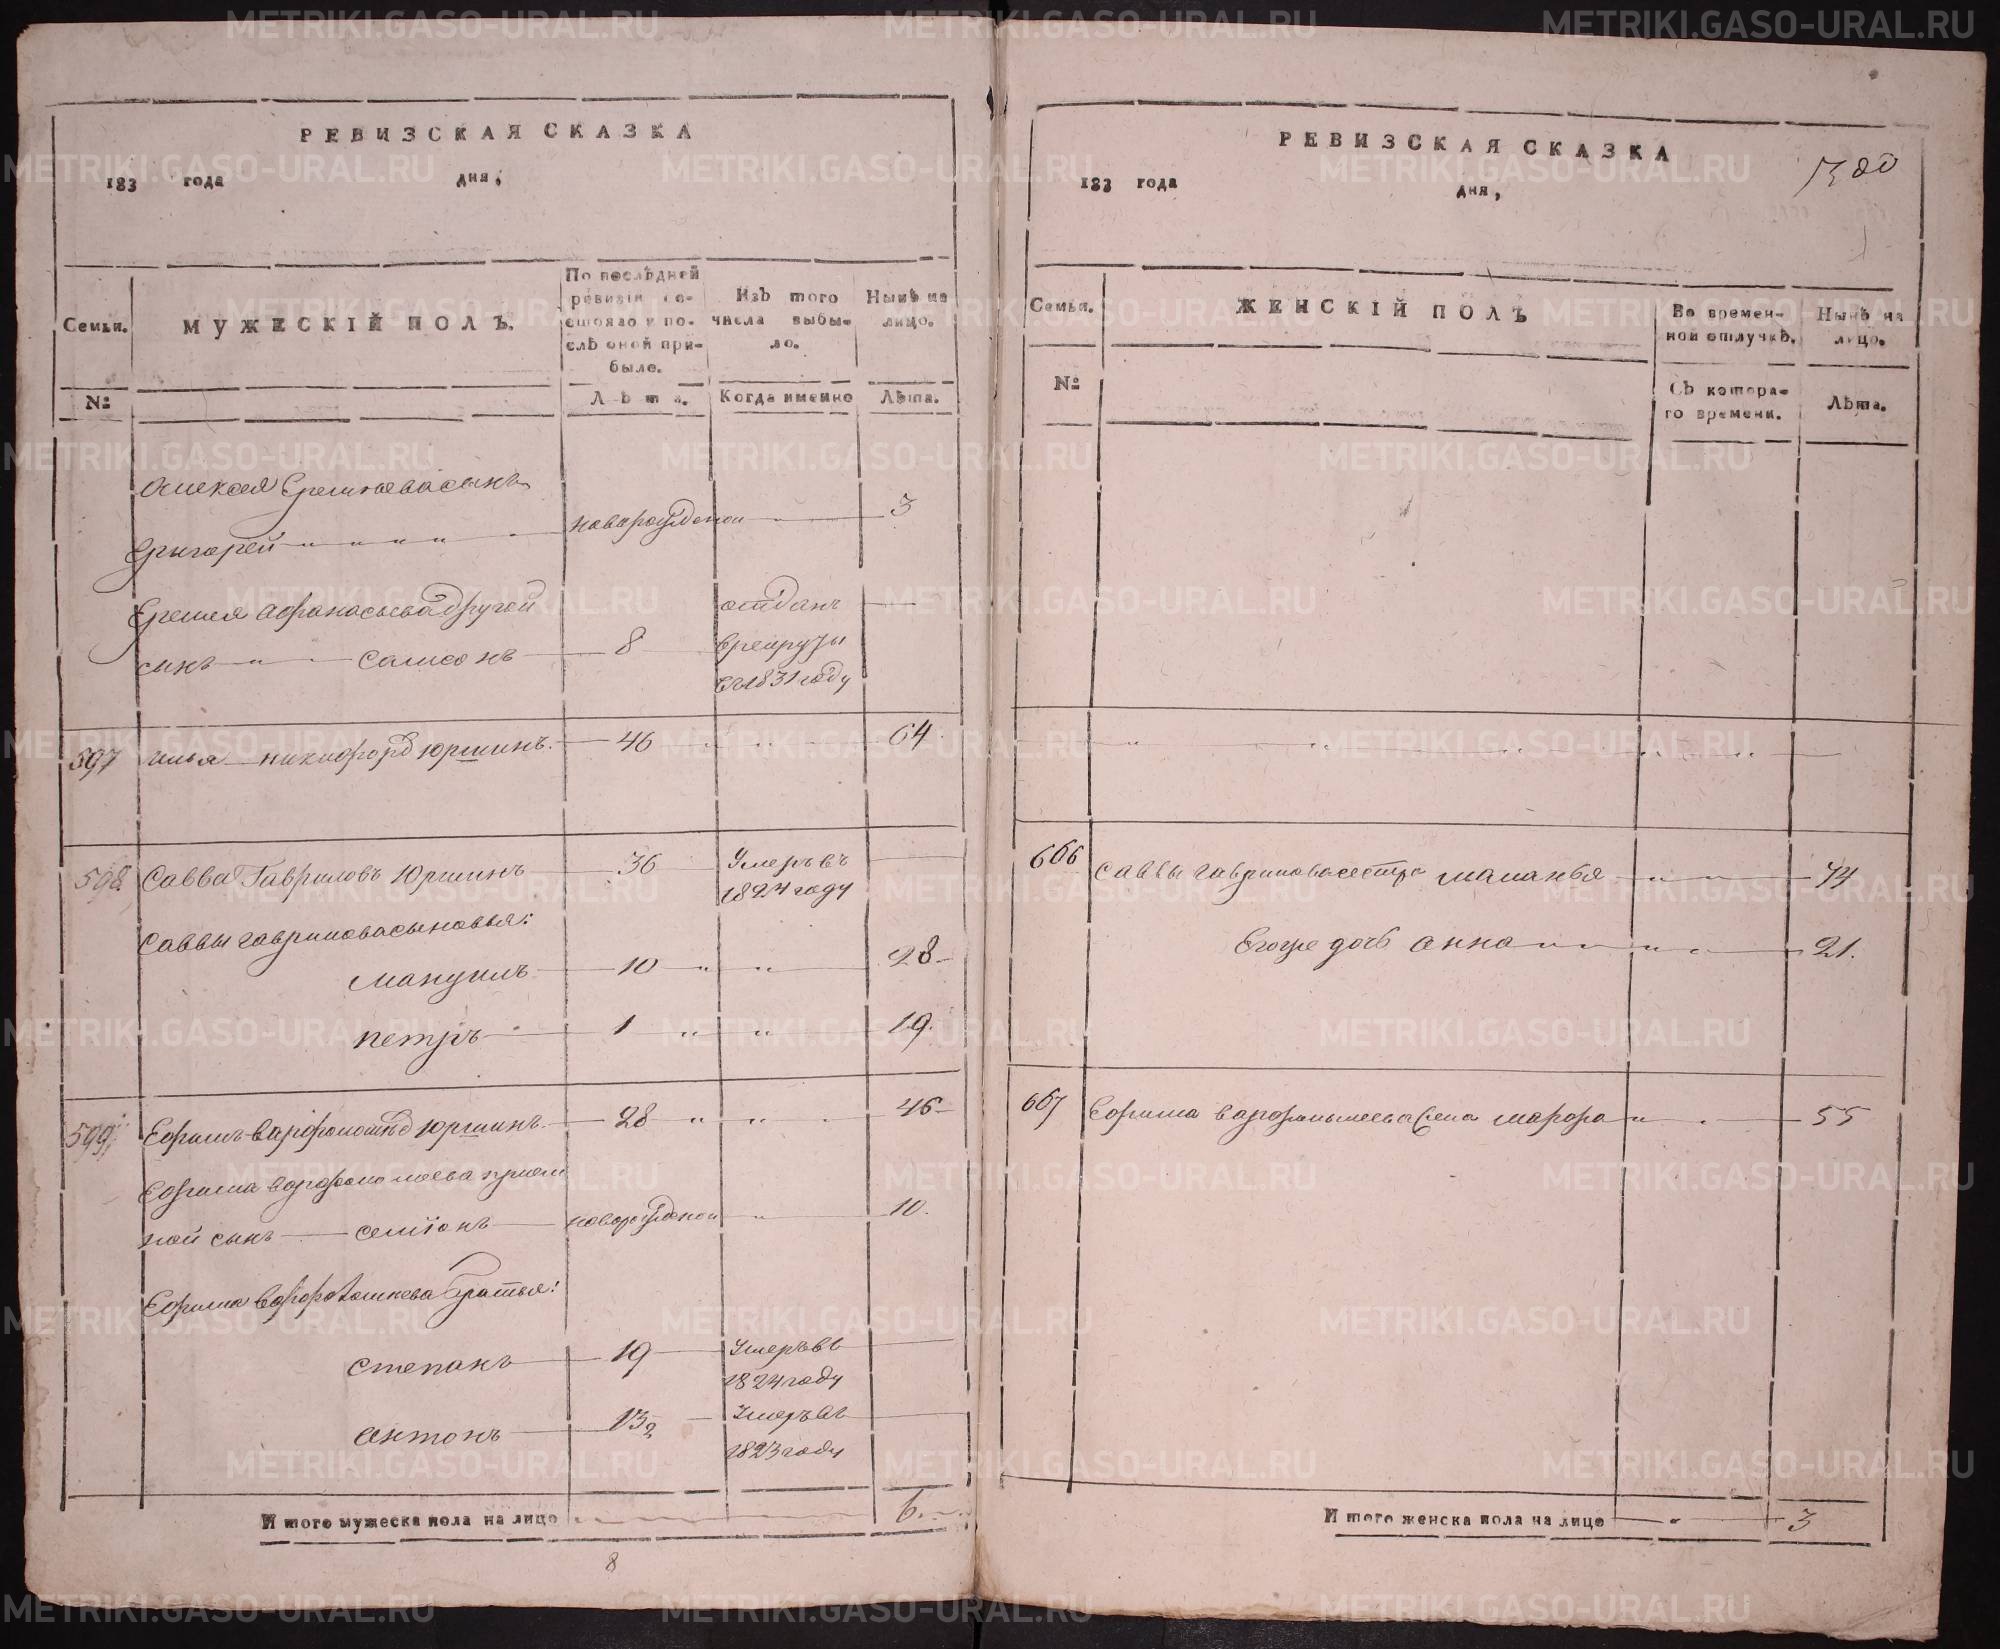 РЕВИЗСКАЯ СКАЗКА
183 года дня,
Семьи.
МУЖЕСКІЙ ПОЛЪ.
По послѣдней ревизіи состояло и послѣ оной прибыло.
Изъ того числа выбыло.
Нынѣ на лицо.
№
Лѣта.
Когда именно
Лѣта.
Алексея Еремеева сынъ
Григорей новорожденой 3
Еремея Афонасьева другей отданъ
сынъ Самсонъ 8 врекруты
въ 1831 году
597 илья никифоровъ Юршинъ. 46 64.
598 Савва Гавриловъ Юршинъ 36 Умеръ въ
1824 году
Саввы гаврилова сыновья:
Мануилъ 10 28
петръ 1 19.
599 Ефимъ варфоломеевъ Юршинъ. 28 46
Ефима варфоломеева прием
ной сынъ семіонъ новорожденой 10.
Ефима варфоломеева братья:
степанъ 19 Умеръ въ
1824 году
антонъ 13½ Умеръ въ
1823 году
Итого мужеска пола на лицо 6.
8
РЕВИЗСКАЯ СКАЗКА
183 года дня,
Семьи.
ЖЕНСКІЙ ПОЛЪ
Во временной отлучкѣ.
Нынѣ на лицо.
№
Съ котораго времени.
Лѣта.
666 саввы гаврилова сестра маланья 44
Егоже дочь анна 21.
667 Ефима варфоломеева жена марфа 55
Итого женска пола на лицо 3
METRIKI.GASO-URAL.RU